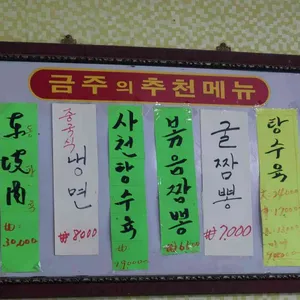 금주의 추천메뉴
東坡肉
동파육
₩30,000
중국식
냉면
₩8000
사천탕수육
볶음짬뽕
굴짬뽕
₩7.000
탕수육